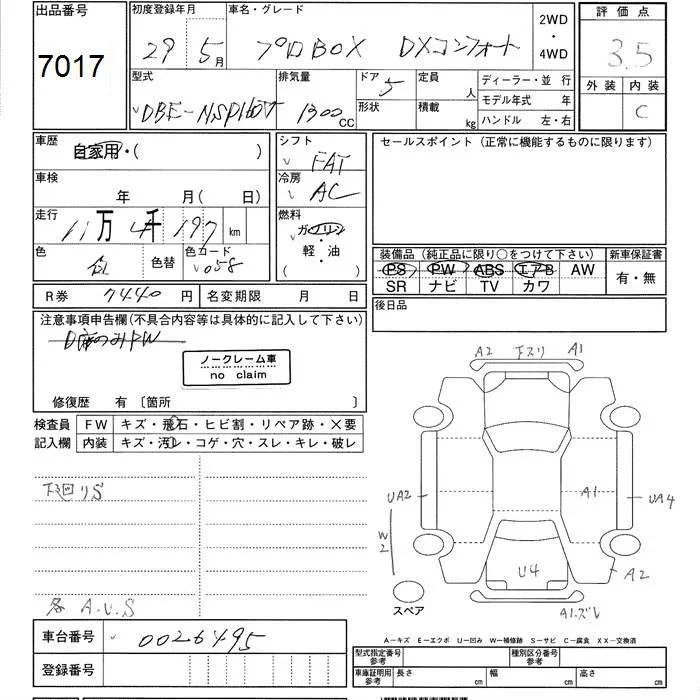 出品番号 初度登録年月 車名・グレード 2WD 評価点
7017 29年 5月 プロBOX DXコンフォート ・ 3.5
4WD 外装 内装
型式 排気量 ドア 5 定員 人 ディーラー・並 行 C
DBE-NSP160V 1300CC 形状 積載 kg モデル年式 年
ハンドル 左・右
車歴 自家用・( ) シフト FAT セールスポイント (正常に機能するものに限ります)
車検 年 月(日) 冷房 AC
走行 11万4千197km 燃料 ガソリン・軽・油 ( )
色 白 色替 色コード 058
装備品 (純正品に限り○をつけて下さい) 新車保証書
PS PW ABS エアB AW 有・無
SR ナビ TV カワ
R券 7440円 名変期限 月 日 後日品
注意事項申告欄(不具合内容等は具体的に記入して下さい)
D席のみPW
ノークレーム車
no claim
修復歴 有 〔箇所 〕
検査員 FW キズ・飛石・ヒビ割・リペア跡・×要
記入欄 内装 キズ・汚・コゲ・穴・スレ・キレ・破レ
下廻りS
各 A.U.S
A2 下スリ A1
UA2 A1 UA4
W2
U4 A2
スペア A1.ズレ
車台番号 0026495
A-キズ E-エクボ U-凹み W-補修跡 S-サビ C-腐食 XX-交換済
登録番号
型式指定番号 参考 種別区分番号 参考
車庫証明用 参考 長さ cm 幅 cm 高さ cm